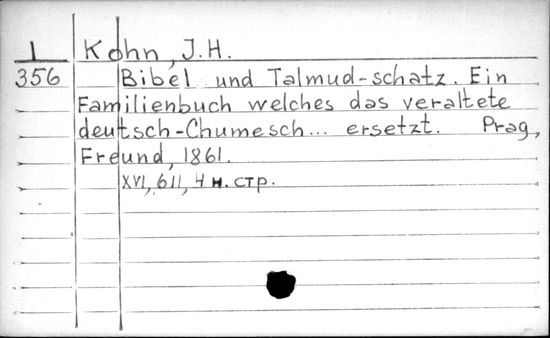 1 Kohn, J.H.
356 Bibel und Talmud-schatz. Ein
Familienbuch welches das veraltete
deutsch-Chumesch... ersetzt. Prag,
Freund, 1861.
XVI, 611, 4 н. стр.